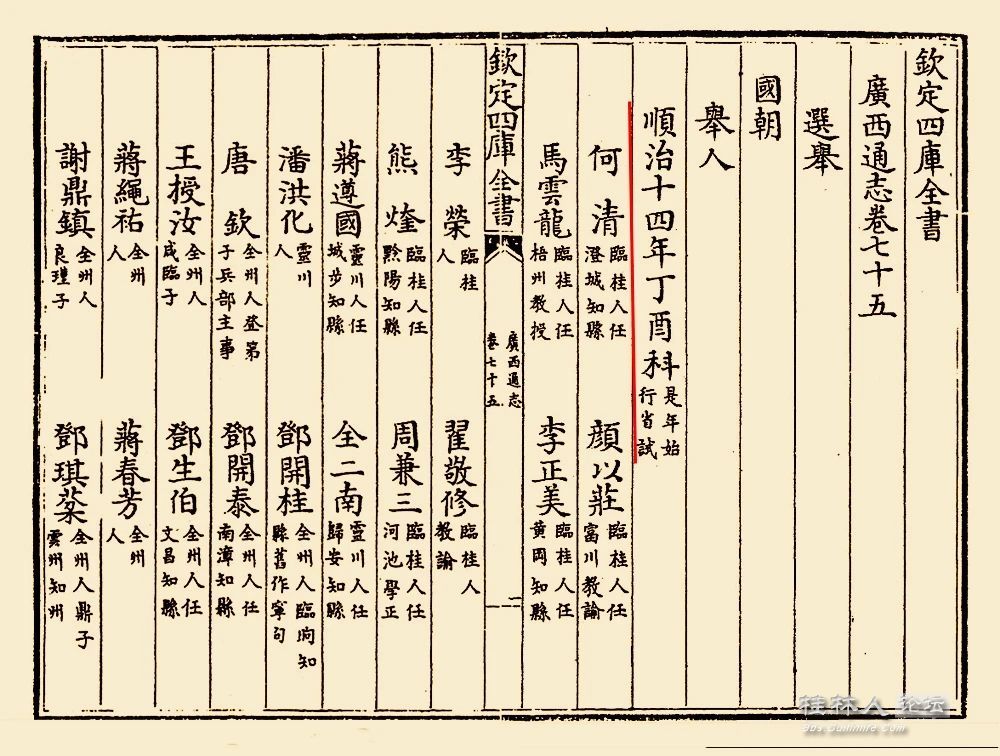 欽定四庫全書
廣西通志卷七十五
選舉
國朝
舉人
順治十四年丁酉科是年始行省試
何清臨桂人任澄城知縣 顏以莊臨桂人任富川教諭
馬雲龍臨桂人任梧州教授 李正美臨桂人任黄岡知縣
欽定四庫全書 廣西通志卷七十五 二
李榮臨桂人 翟敬修臨桂人教諭
熊煃臨桂人任黔陽知縣 周兼三臨桂人任河池學正
蔣遵國靈川人任城步知縣 全二南靈川人任歸安知縣
潘洪化靈川人 鄧開桂全州人臨朐知縣舊作寧句
唐欽全州人登第子兵部主事 鄧開泰全州人任南漳知縣
王授汝全州人咸臨子 鄧生伯全州人任文昌知縣
蔣繩祐全州人 蔣春芳全州人
謝鼎鎮全州人良璡子 鄧琪蘂全州人鼎子雲州知州
桂林人论坛
bbs.guilinlife.com